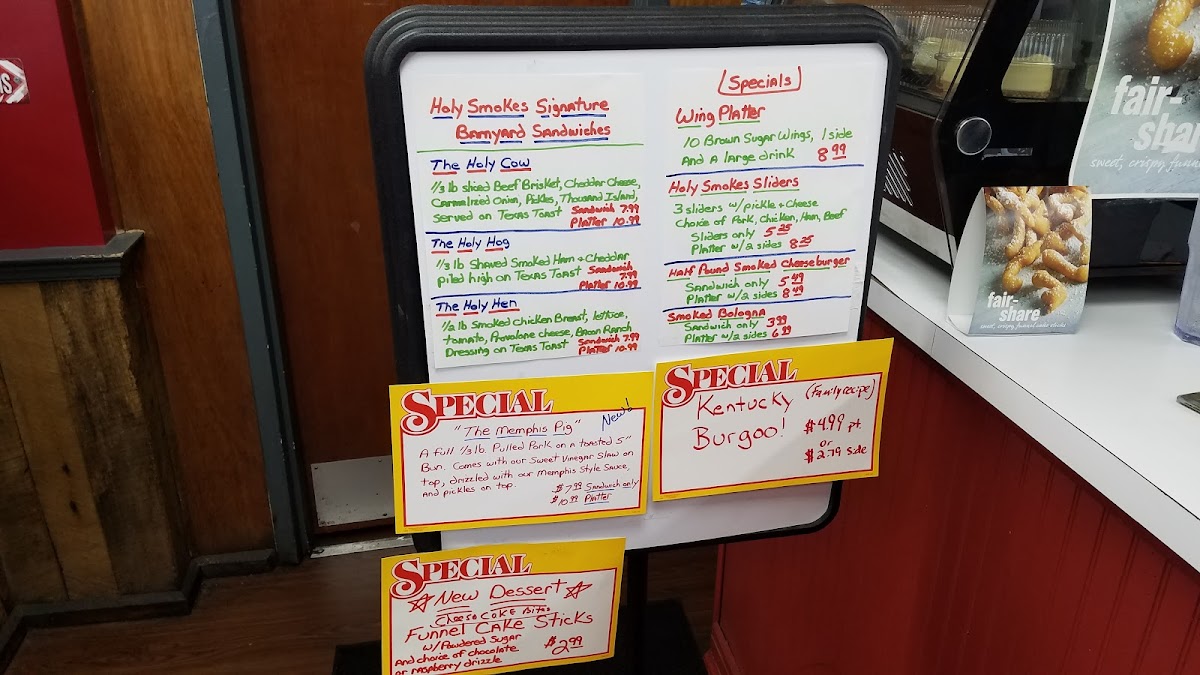 Holy Smokes Signature
Barnyard Sandwiches
The Holy Cow
1/3 lb sliced Beef Brisket, Cheddar Cheese,
Carmalized Onion, Pickles, Thousand Island,
Served on Texas Toast Sandwich 7.99
Platter 10.99
The Holy Hog
1/3 lb Shaved Smoked Ham + Cheddar
piled high on Texas Toast Sandwich 7.99
Platter 10.99
The Holy Hen
1/2 lb Smoked Chicken Breast, lettice,
tomato, Provalone cheese, Bacon Ranch
Dressing on Texas Toast Sandwich 7.99
Platter 10.99
Specials
Wing Platter
10 Brown Sugar Wings, 1 side
And A large drink 8.99
Holy Smokes Sliders
3 sliders w/pickle + Cheese
Choice of Pork, Chicken, Ham, Beef
Sliders only 5.25
Platter w/2 sides 8.25
Half Pound Smoked Cheeseburger
Sandwich only 5.49
Platter w/2 sides 8.49
Smoked Bologna
Sandwich only 3.99
Platter w/2 sides 6.99
SPECIAL
"The Memphis Pig" New!
A full 1/3 lb. Pulled Pork on a toasted 5"
Bun. Comes with our Sweet Vinegar Slaw on
top, drizzled with our Memphis Style Sauce,
and pickles on top.
$7.99 Sandwich only
$10.99 Platter
SPECIAL
Kentucky (Family recipe)
Burgoo! $4.99 pt.
or
$2.79 side
SPECIAL
New Dessert
Cheesecake Bites
Funnel Cake Sticks
w/Powdered Sugar
And choice of chocolate
or raspberry drizzle
$2.99
fair-
share
sweet, crispy, funnel
fair-
share
sweet, crispy, funnel cake sticks